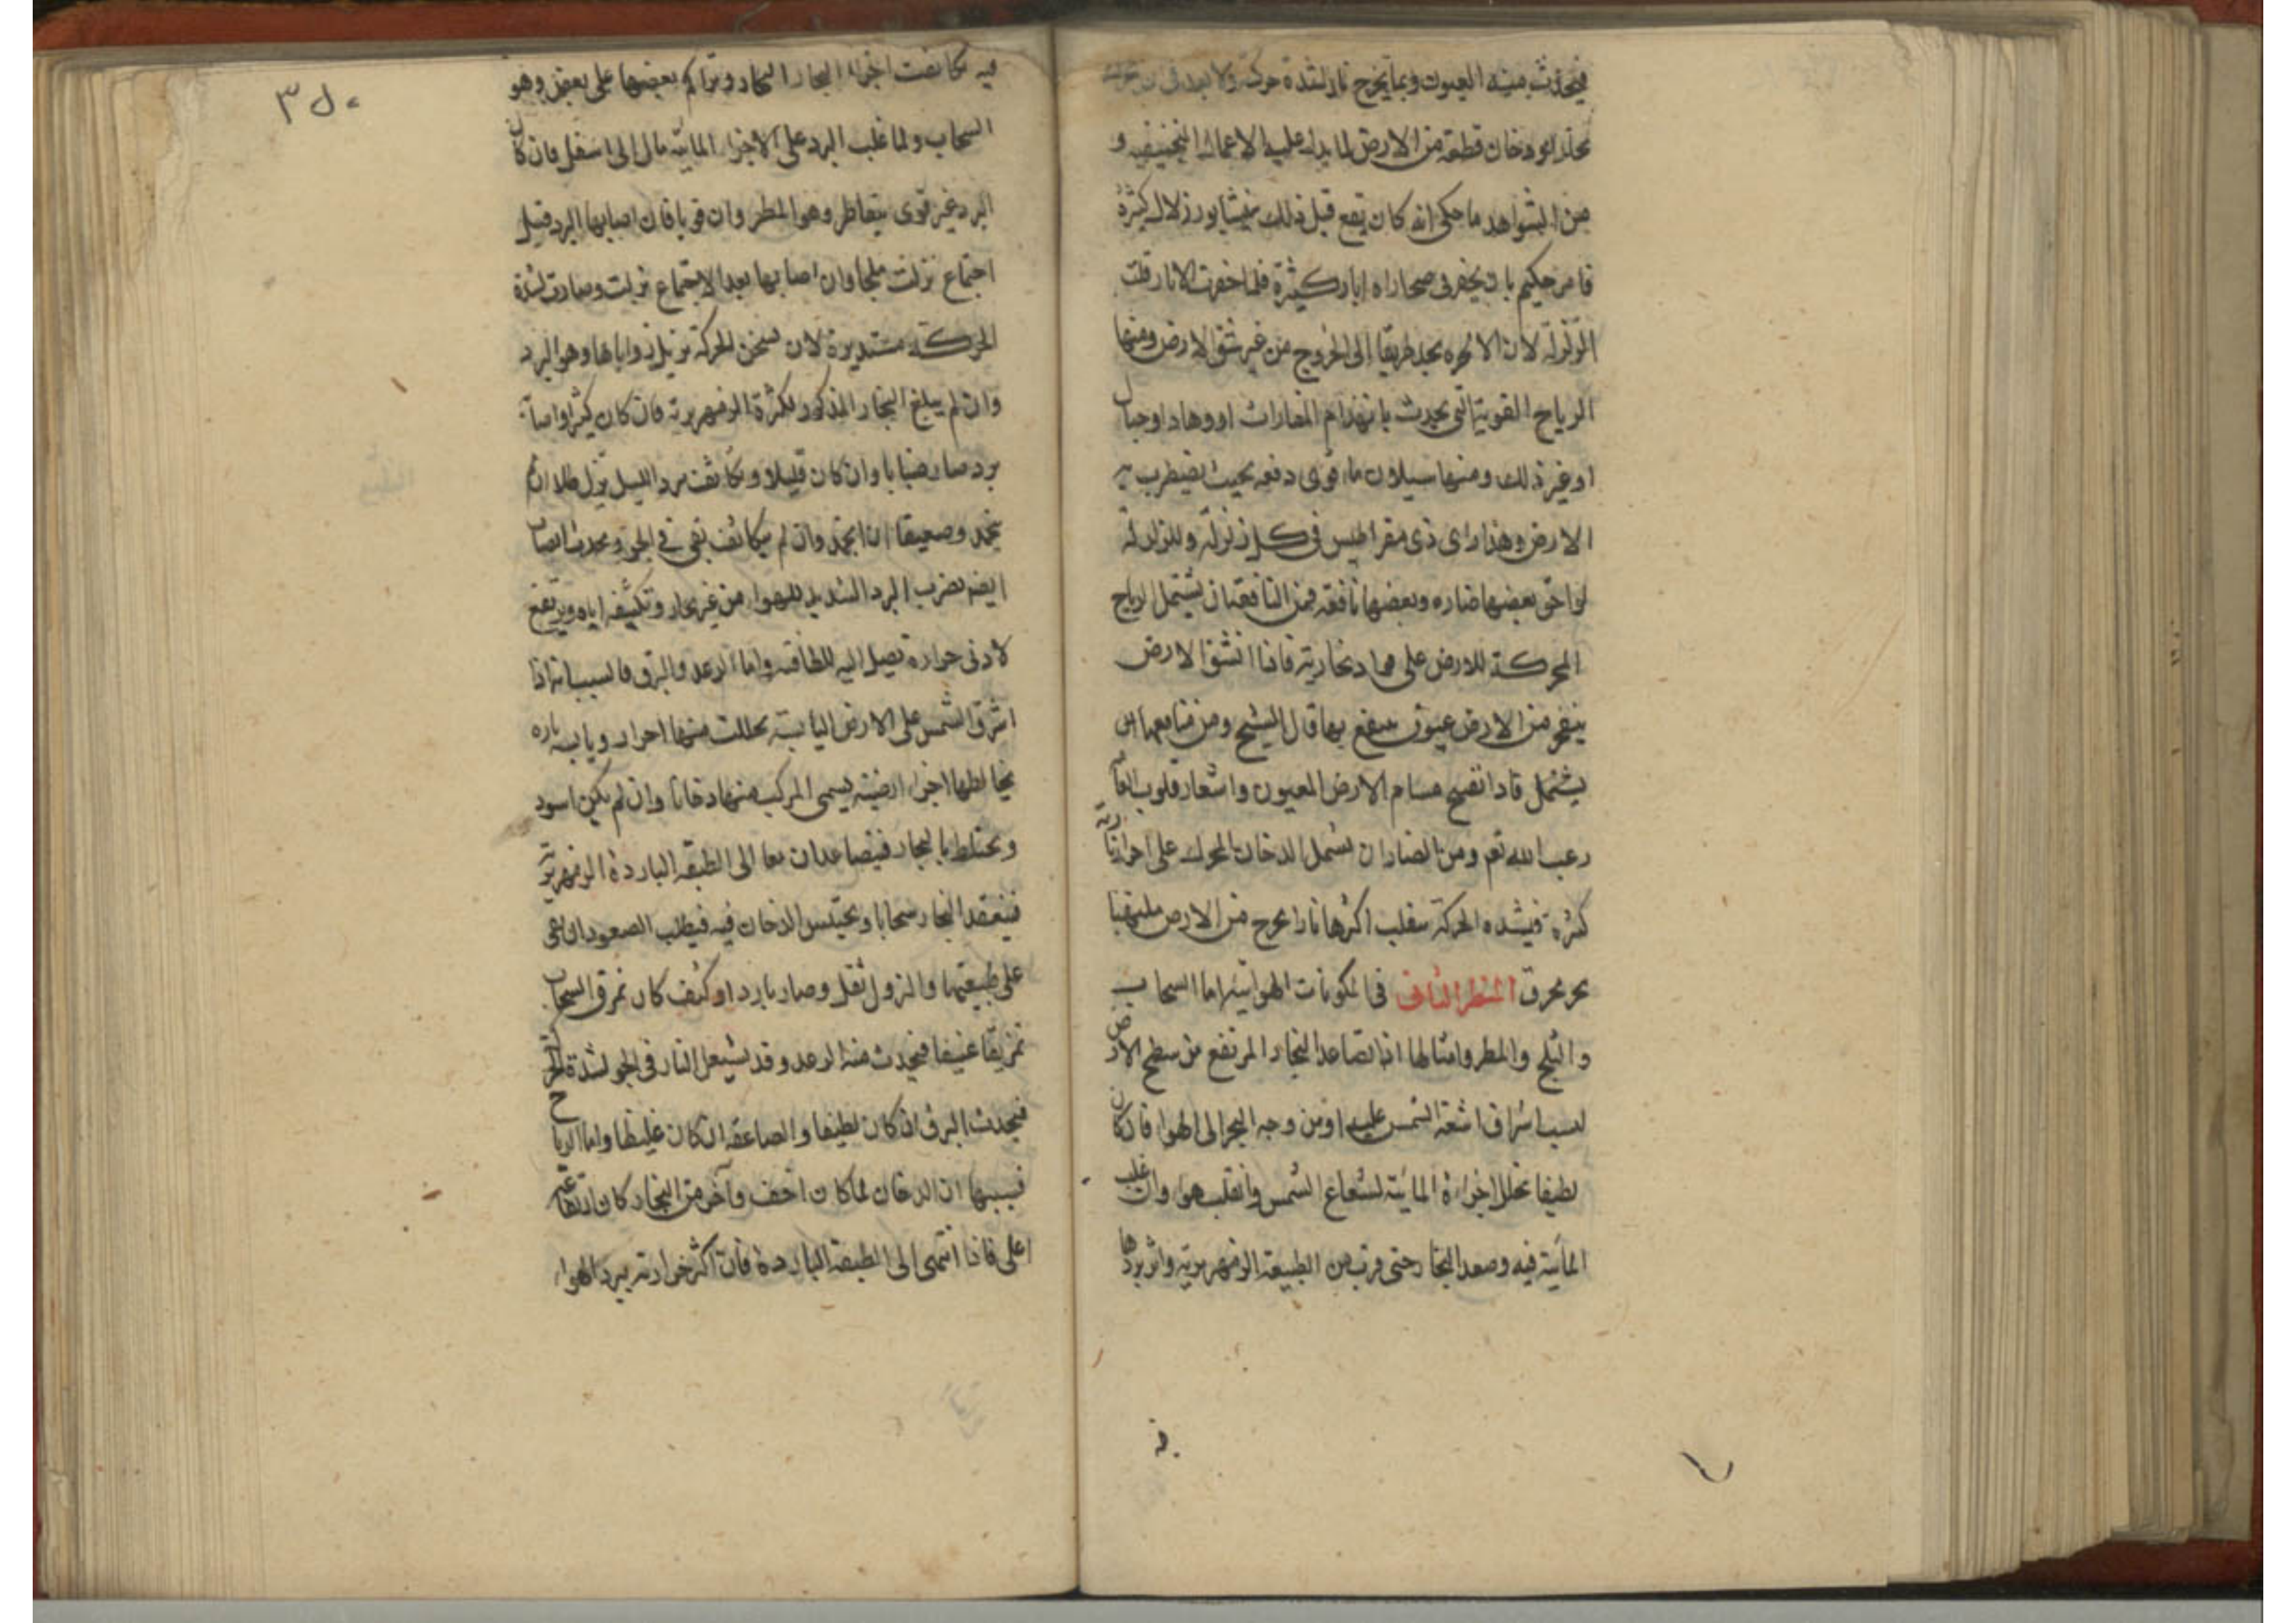 فيحدث منه العيون وبما يخرج نار لشدة حركة ولا بعد في ان
دخان قطعة من الارض لما يدل عليه الاعمال و
من الشواهد ما حكى انه كان يقع قبل ذلك بنيشابور زلازل كثيرة
فامر حكيم بان يحفر في صحاراه ابار كثيرة فلما حفرت الابار قلت
الزلزلة لان الابخره يجد طريقا الى الخروج من غير شق الارض ومنها
الرياح القوية التي يحدث بانهدام المغارات او وهاد او جبال
او غير ذلك ومنها سيلان ماء قوى دفعه بحيث يضطرب به
الارض وهذا راى ذى مقراطيس في كل زلزلة وللزلزلة
لواحق بعضها ضاره وبعضها نافعه فمن النافعة ان يشتمل الرياح
المحركة للارض على مواد بخارية فاذا انشق الارض
ينفجر من الارض عيون ينتفع بها قال الشيخ ومن منافعها ان
يشتمل مسام الارض العيون واشعار قلوب
رعب الله تعم ومن الضار ان يشمل الدخان المحرك على اجزاء نارية
كثرة فبشده الحركة ينقلب اكثرها نارا يخرج من الارض ملتهبا
يحرق النظر الثانى فى المكونات الهوائية اما السحاب
والثلج والمطر وامثالها اذا تصاعد البخار المرتفع من سطح الارض
لسبب اشراق اشعة الشمس عليه او من وجه البحر الى الهواء فان كان
لطيفا تحلل اجزاءه المائية لشعاع الشمس وانقلب هواء وان غلب
المائية فيه وصعد البخار حتى قرب من الطبيعة الزمهريرية واثر بردها
فيه
فيه تكاثفت اجزاء البخار وتراكم بعضها على بعض وهو
السحاب ولما غلب البرد على الاجزاء المائية مال الى اسفل فان كان
البرد غير قوى يتقاطر وهو المطر وان قويا فان اصابها البرد قبل
اجتماع نزلت ثلجا وان اصابها بعد الاجتماع نزلت وصارت لشدة
الحركة مستديرة لان تسخن الحركة تزيل زواياها وهو البرد
وان لم يبلغ البخار المذكور لكثرة الزمهريرية فان كان كثيرا واصابه
برد صار ضبابا وان كان قليلا وتكاثف ببرد الليل نزل طلا ان لم
ينجمد وصعيقا ان انجمد وان لم يتكاثف بقى في الجو ويحدث
ايضم يضرب البرد الشديد للهواء من غير بخار وتكثيفه اياه ويرتفع
لادنى حراره تصل اليه للطافته واما الرعد والبرق فالسبب انه اذا
اشرق الشمس على الارض اليابسة تحللت منها اجزاء ويابسه ناره
يخالطها اجزاء ارضية يسمى المركب منها دخانا وان لم يكن اسود
ويختلط بالبخار فيتصاعدان معا الى الطبقه الباردة الزمهريرية
فينعقد البخار سحابا ويحتبس الدخان فيه فيطلب الصعود ان بقى
على طبيعتها والنزول ان ثقل وصار باردا وكيف كان تمزق السحاب
تمزيقا عنيفا فيحدث منه الرعد وقد يشتعل النار في الجو لشدة الحركة
فيحدث البرق ان كان لطيفا والصاعقه ان كان غليظا واما الرياح
فسببها ان الدخان لما كان اخف من البخار كان ارتفاعه
اعلى فاذا انتهى الى الطبقة الباردة فان اكثر حرارته ببرد الهواء